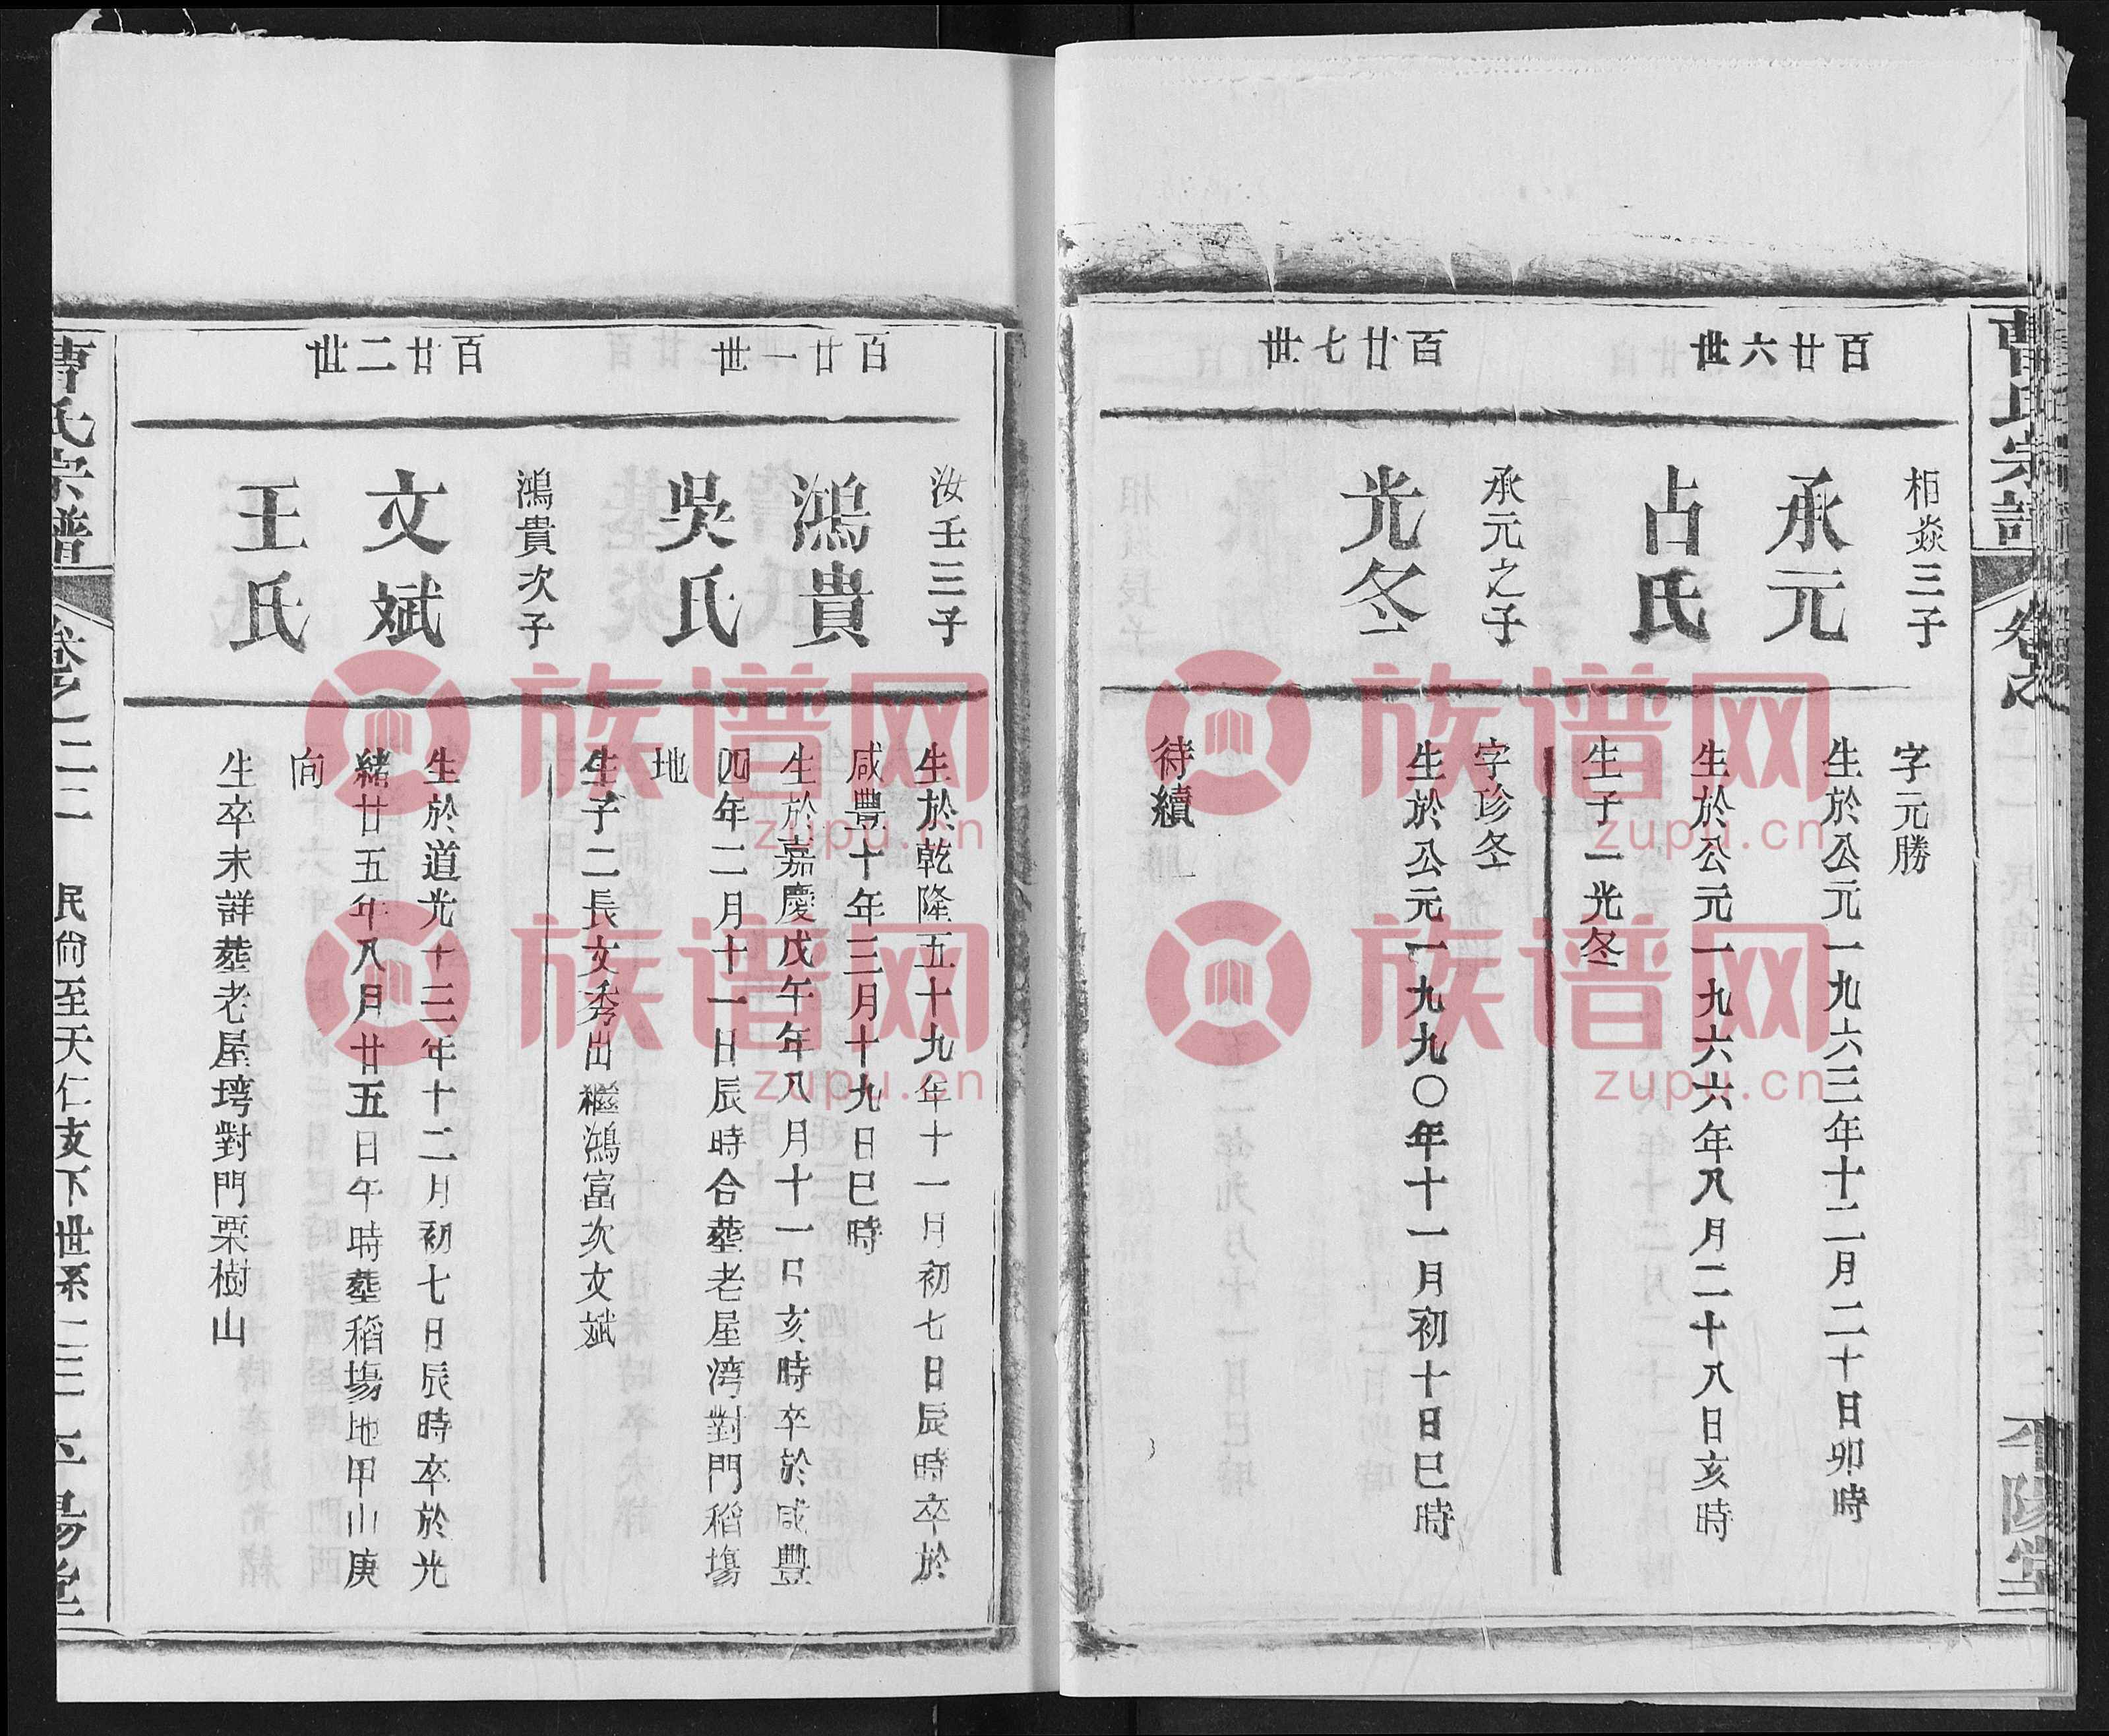 曹氏宗譜
卷之
平陽堂
百廿六世
相焱三子
承元
占氏
字元勝
生於公元一九六三年十二月二十日卯時
生於公元一九六六年八月二十八日亥時
生子一光冬
百廿七世
承元之子
光冬
字珍冬
生於公元一九九〇年十一月初十日巳時
待續
百廿一世
汝壬三子
鴻貴
吳氏
生於乾隆五十九年十一月初七日辰時卒於
咸豐十年三月十九日巳時
生於嘉慶戊午年八月十一日亥時卒於咸豐
四年二月十一日辰時合塟老屋湾對門稻場
地
生子二長文秀出繼鴻富次文斌
百廿二世
鴻貴次子
文斌
王氏
生於道光十三年十二月初七日辰時卒於光
緒廿五年八月廿五日午時塟稻場地甲山庚
向
生卒未詳塟老屋塆對門栗樹山
曹氏宗譜
卷之二二
民尚至天仁支下世系
平陽堂
族谱网
zupu.cn
族谱网
zupu.cn
族谱网
zupu.cn
族谱网
zupu.cn